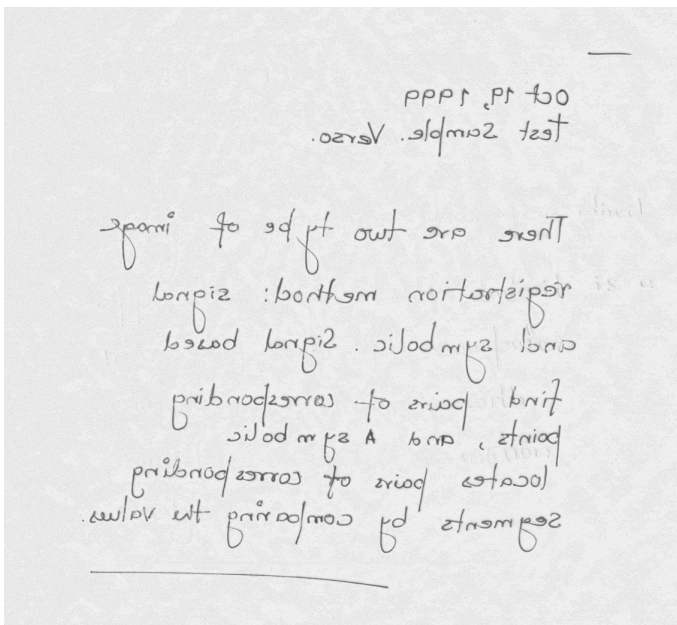 oct 19, 1999
Test Sample. Verso.
There are two type of image
registration method: signal
and symbolic. Signal based
find pairs of corresponding
points, and A symbolic
locates pairs of corresponding
segments by comparing the values.